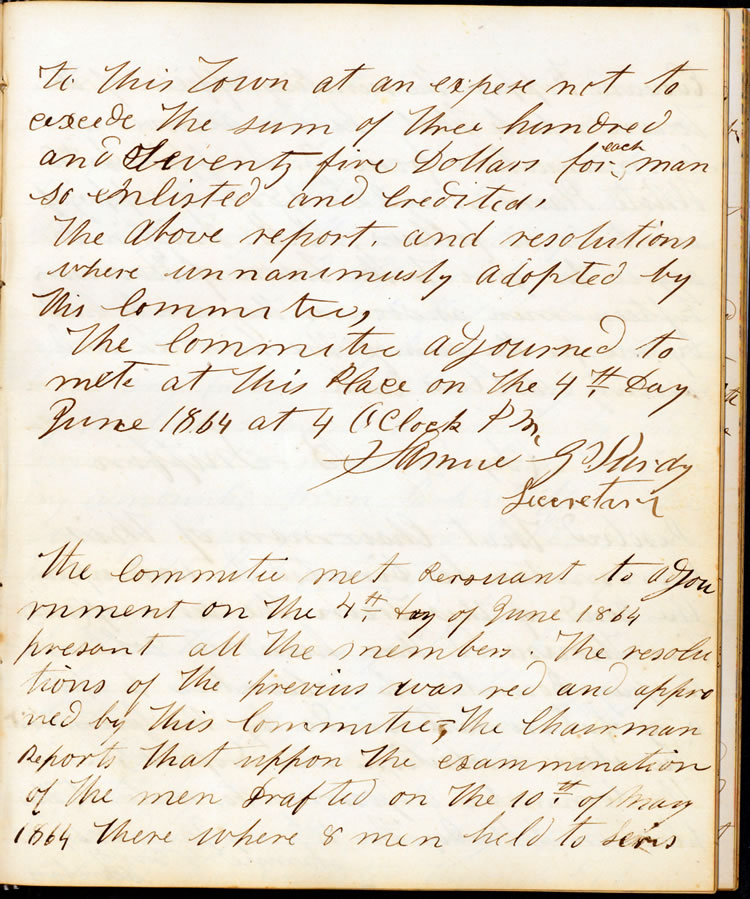 to this Town at an expese not to
exceede the sum of three hundred
and Seventy five Dollars for each man
so enlisted and credited,
The above report, and resolutions
where unnanimusly adopted by
this Committie,
The Committie adjourned to
mete at this Place on the 4th Day
June 1864 at 4 O Clock P M,
Samue G Purdy
Secretary
The Committie met Persuant to adjou
rnment on the 4th day of June 1864
present all the members. The resolu
tions of the previus was red and appro
ved by this Committie, the Chairman
Reports that uppon the exammination
of the men Drafted on the 10th of May
1864 there where 8 men held to Servis